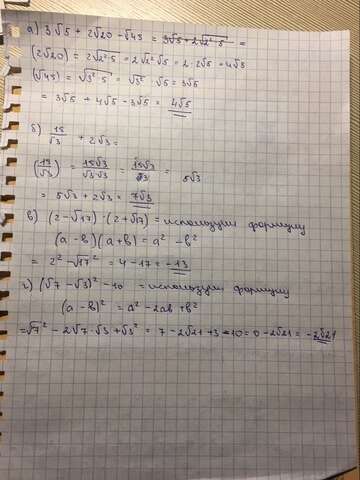 а) 3√5 + 2√20 - √45 = 3√5 + 2√2²·5 =
(2√20) = 2√2²·5 = 2√2²√5 = 2·2√5 = 4√5
(√45) = √3²·5 = √3²·√5 = 3√5
= 3√5 + 4√5 - 3√5 = 4√5
б) 15/√3 + 2√3 =
(15/√3) = 15√3/√3√3 = 15√3/3 = 5√3
= 5√3 + 2√3 = 7√3
в) (2-√17)·(2+√17) = используем формулу
(а-в)(а+в) = а² - в²
= 2² - √17² = 4 - 17 = -13
г) (√7 - √3)² - 10 = используем формулу
(а-в)² = а² - 2ав + в²
= √7² - 2√7·√3 + √3² = 7 - 2√21 + 3 - 10 = 0 - 2√21 = -2√21